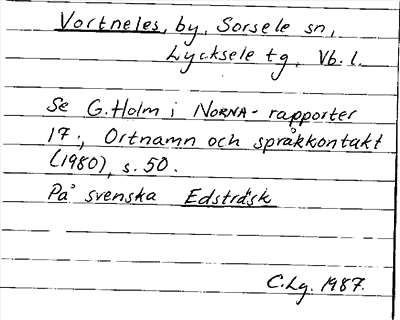 Vortneles, by, Sorsele sn,
Lycksele tg, Vb. l.
Se G. Holm i NORNA-rapporter
17:, Ortnamn och språkkontakt
(1980), s. 50.
På svenska Edsträsk
C.Lg. 1987.